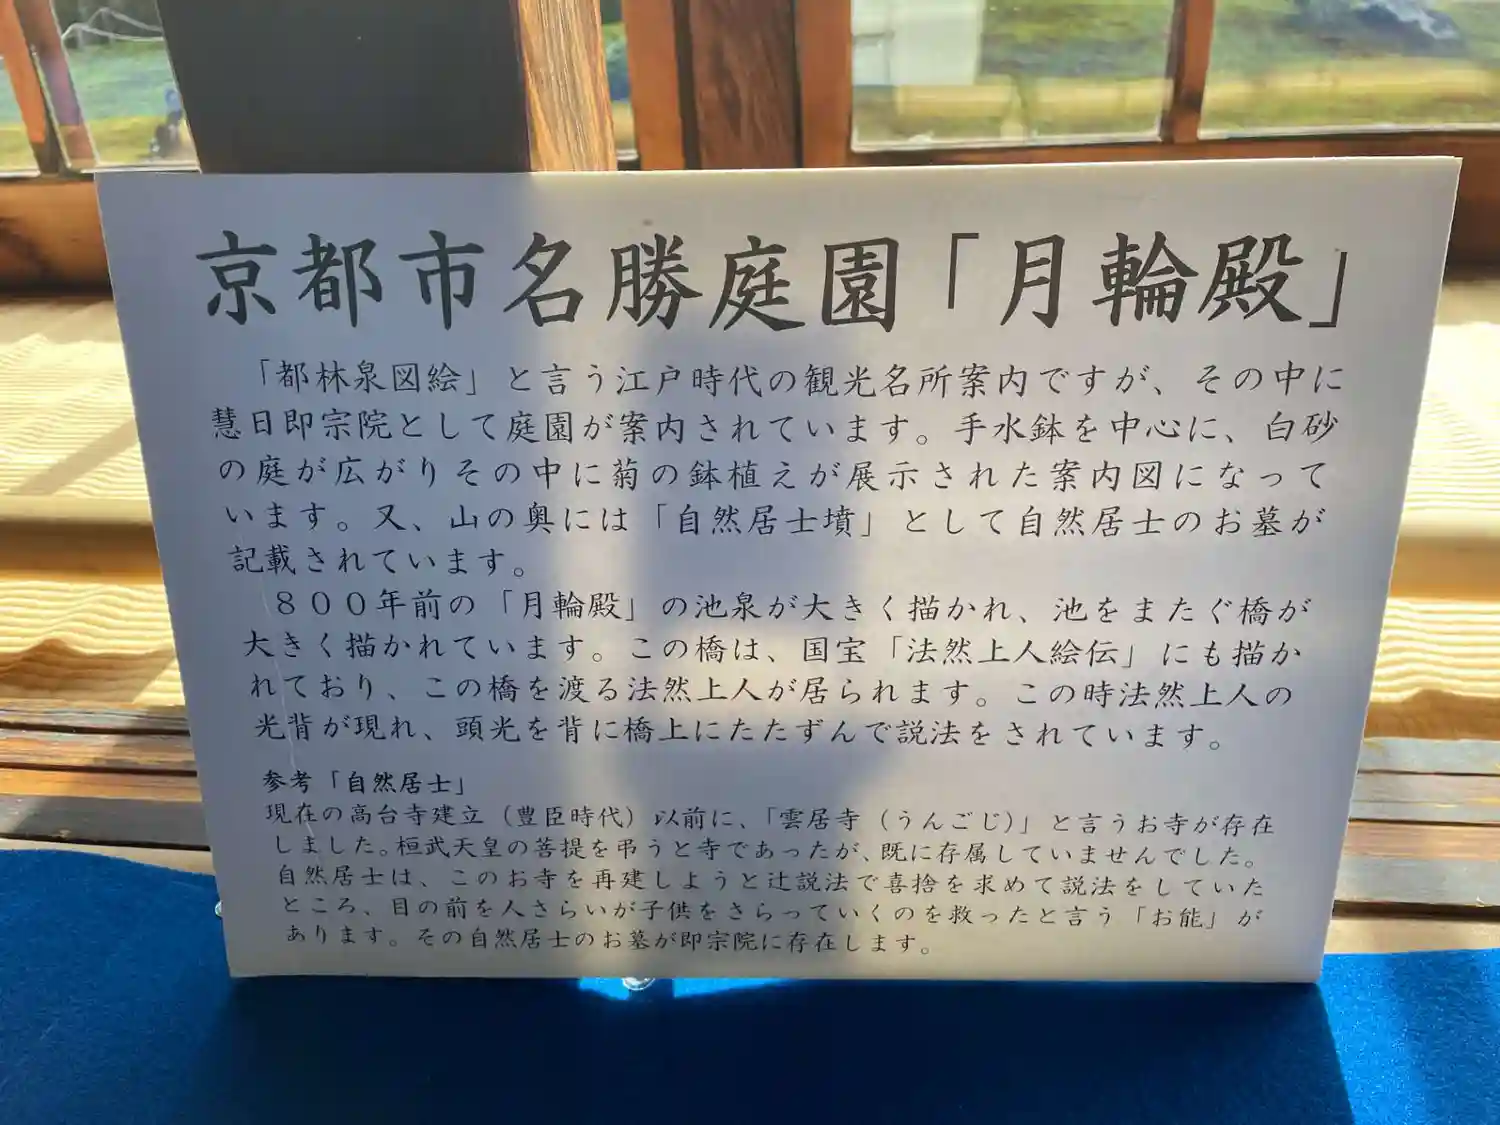 京都市名勝庭園「月輪殿」
「都林泉図絵」と言う江戸時代の観光名所案内ですが、その中に
慧日即宗院として庭園が案内されています。手水鉢を中心に、白砂
の庭が広がりその中に菊の鉢植えが展示された案内図になって
います。又、山の奥には「自然居士墳」として自然居士のお墓が
記載されています。
８００年前の「月輪殿」の池泉が大きく描かれ、池をまたぐ橋が
大きく描かれています。この橋は、国宝「法然上人絵伝」にも描か
れており、この橋を渡る法然上人が居られます。この時法然上人の
光背が現れ、頭光を背に橋上にたたずんで説法をされています。
参考「自然居士」
現在の高台寺建立（豊臣時代）以前に、「雲居寺（うんごじ）」と言うお寺が存在
しました。桓武天皇の菩提を弔うと寺であったが、既に存属していませんでした。
自然居士は、このお寺を再建しようと辻説法で喜捨を求めて説法をしていた
ところ、目の前を人さらいが子供をさらっていくのを救ったと言う「お能」が
あります。その自然居士のお墓が即宗院に存在します。